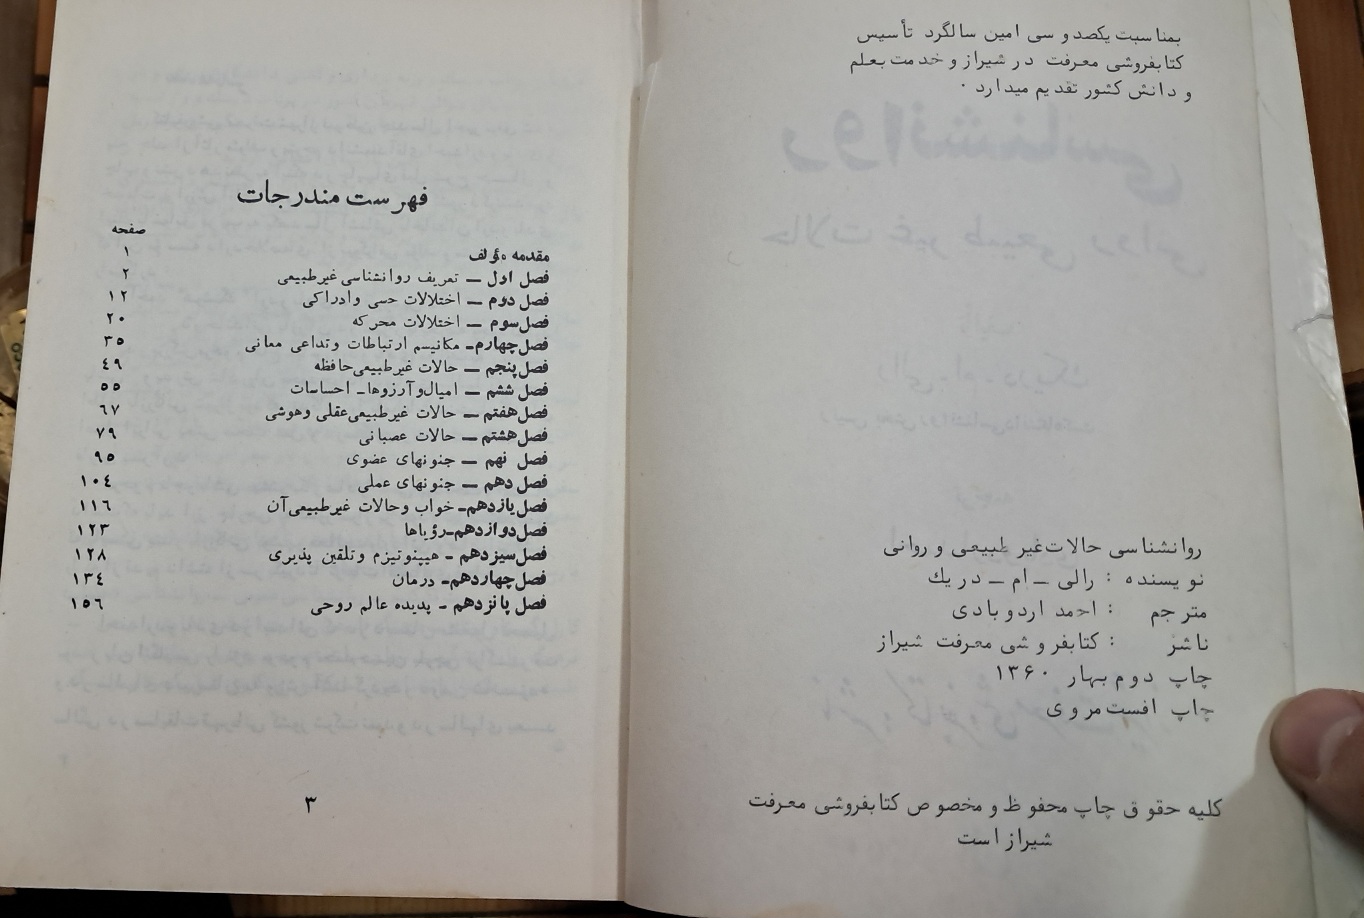 بمناسبت یکصدو سی امین سالگرد تأسیس
کتابفروشی معرفت در شیراز و خدمت بعلم
و دانش کشور تقدیم میدارد .
روانشناسی حالات غیر طبیعی و روانی
نویسنده : رالی ــ ام ــ دریك
مترجم : احمد اردوبادی
ناشر : کتابفروشی معرفت شیراز
چاپ دوم بهار ۱۳۶۰
چاپ افست مروی
کلیه حقوق چاپ محفوظ و مخصوص کتابفروشی معرفت
شیراز است
فهرست مندرجات
صفحه
مقدمه مؤلف ۱
فصل اول ــ تعریف روانشناسی غیرطبیعی ۲
فصل دوم ــ اختلالات حسی وادراکی ۱۲
فصل سوم ــ اختلالات محرکه ۲۰
فصل چهارم- مکانیسم ارتباطات وتداعی معانی ۳۵
فصل پنجم ــ حالات غیرطبیعی حافظه ٤۹
فصل ششم ــ امیال وآرزوها- احساسات ۵۵
فصل هفتم ــ حالات غیرطبیعی عقلی وهوشی ۶۷
فصل هشتم ــ حالات عصبانی ۷۹
فصل نهم ــ جنونهای عضوی ۹۵
فصل دهم ــ جنونهای عملی ۱۰٤
فصل یازدهم- خواب وحالات غیرطبیعی آن ۱۱۶
فصل دوازدهم-رؤیاها ۱۲۳
فصل سیزدهم - هیپنوتیزم وتلقین پذیری ۱۲۸
فصل چهاردهم- درمان ۱۳٤
فصل پانزدهم - پدیده عالم روحی ۱۵۶
۳